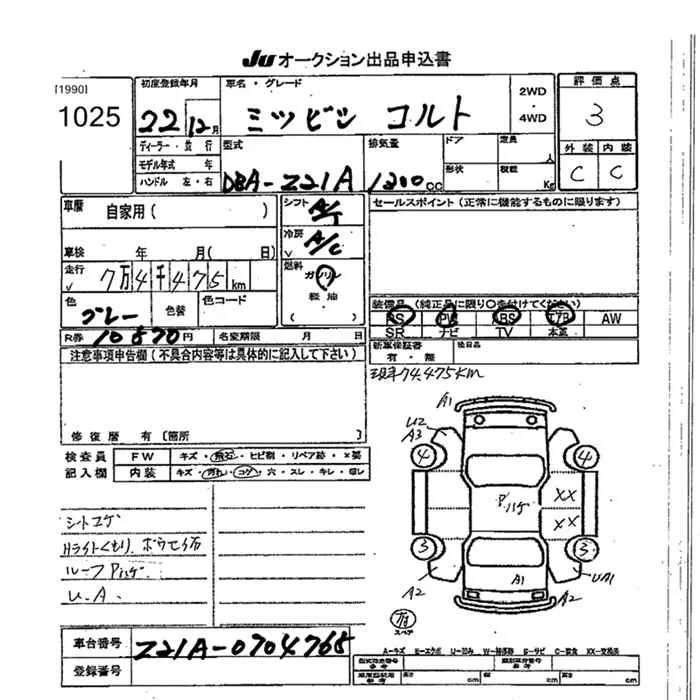 JU オークション出品申込書
[1990]
1025
初度登録年月
22 12月
車名・グレード
ミツビシ コルト
2WD
・
4WD
評価点
3
外装 内装
C C
ディーラー・並行
モデル年式 年
ハンドル 左・右
型式
DBA-Z21A
排気量
1300cc
ドア
定員
人
形状
積載
Kg
車歴 自家用( )
シフト A/T
冷房 A/C
セールスポイント(正常に機能するものに限ります)
車検 年 月( 日)
走行 7万4千475km
燃料 ガソリン
軽油
色 グレー
色替
色コード
装備品(純正品に限り○を付けてください)
PS PW ABS エアB AW
SR ナビ TV 本革
R券 10870円
名変期限 月 日
新車保証書
有・無
後日品
注意事項申告欄(不具合内容等は具体的に記入して下さい)
現車74,475KM
修復歴 有[箇所 ]
検査員
記入欄
FW キズ・飛石・ヒビ割・リペア跡・×要
内装 キズ・汚れ・コゲ・穴・スレ・キレ・湿レ
シートコゲ
Hライトくもり
ルーフPハゲ
U.A
A1
U2
A3
4
4
Pハゲ
XX
XX
3
3
A2
A1
UA1
A2
スペア
A-キズ E-エクボ U-凹み W-補修跡 S-サビ C-腐食 XX-交換済
車台番号 Z21A-0704768
登録番号
型式指定番号
類別区分番号
長さ cm 幅 cm 高さ cm